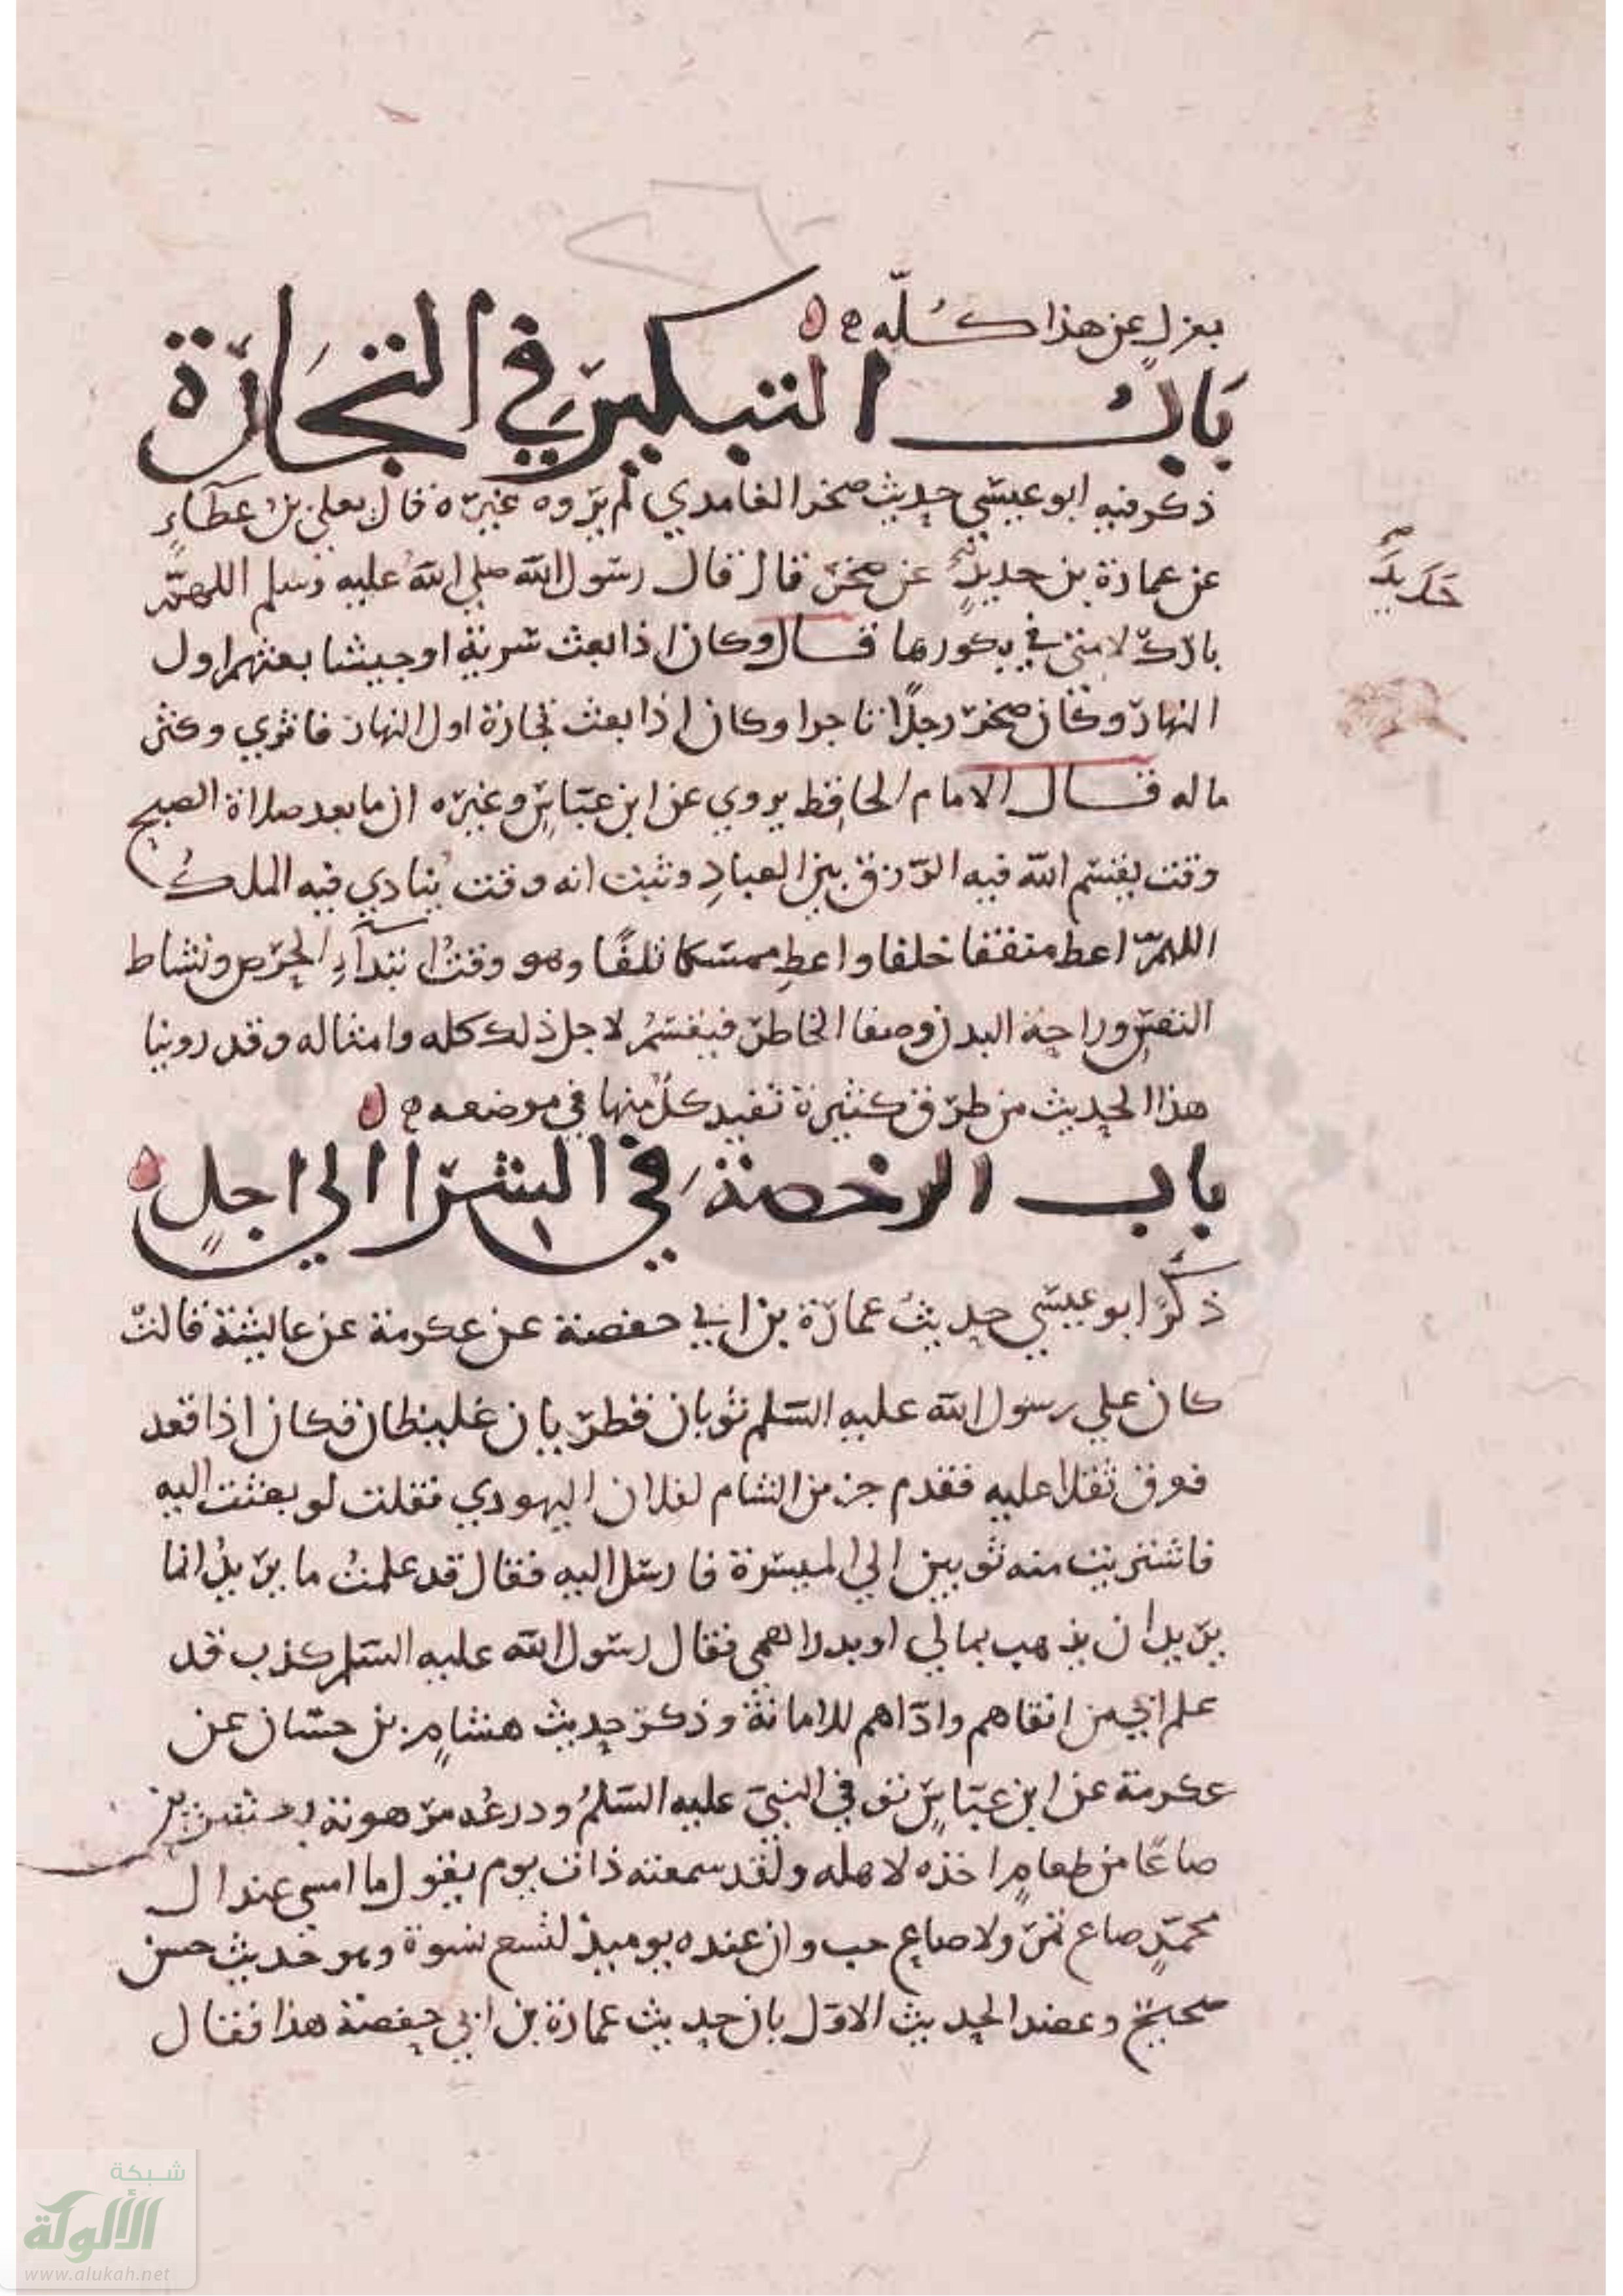 بمعزل عن هذا كُلّه ه
بَابُ التبكير في التجَارَة
ذكر فيه ابو عيسي حديث صخر الغامدي لم يروه غيره قال يعلي بن عطاءٍ
عن عمارة بن حديدٍ عن صخر قال قال رسول الله صلي الله عليه وسلم اللهمّ
حَدِيد
بارك لامتي في بكورها قال وكان اذا بعث سرية او جيشا بعثهم اول
النهار وكان صخر رجلًا تاجرا وكان اذا بعث تجارة اول النهار فاثري وكثر
ماله قال الامام الحافظ يروي عن ابن عباسٍ وغيره ان ما بعد صلاة الصبح
وقت يقسم الله فيه الرزق بين العبادِ وثبت انه وقت ينادي فيه الملك
اللهمّ اعط منفقا خلفا واعطِ ممسكا تلفًا وهو وقتُ ابتدآءِ الحرص ونشاط
النفسِ وراحة البدن وصفا الخاطر فيقسمُ لاجل ذلك كله وامثاله وقد روينا
هذا الحديث من طرق كثيرة تفيد كلٌ منها في موضعه ه
باب الرخصة في الشرا الي اجلٍ
ذكر ابو عيسي حديث عمارة بن ابي حفصة عن عكرمة عن عايشة قالت
كان علي رسول الله عليه السلم ثوبان قطريان غليظان فكان اذا قعد
فعرق ثقلا عليه فقدم بز من الشام لفلان اليهودي فقلت لو بعثت اليه
فاشتريت منه ثوبين الي الميسرة فارسل اليه فقال قد علمتُ ما يريدُ انما
يريد ان يذهب بمالي او بدراهمي فقال رسول الله عليه السلم كذب قد
علم اني من اتقاهم وادّاهم للامانة وذكر حديث هشامِ بن حسّان عن
عكرمة عن ابن عبّاسٍ توفي النبيّ عليه السّلمُ ودرعُه مرهونة بعشرين
صاعًا من طعامٍ اخذه لاهله ولقد سمعته ذات يوم يقول ما امسي عند ال
محمّدٍ صاع تمرٍ ولا صاع حب وان عنده يوميذ لتسع نسوة وهو حديث حسن
صحيحٌ وعضد الحديث الاوّل بان حديث عمارة بن ابي حفصة هذا فقال
شبكة
الألوكة
www.alukah.net